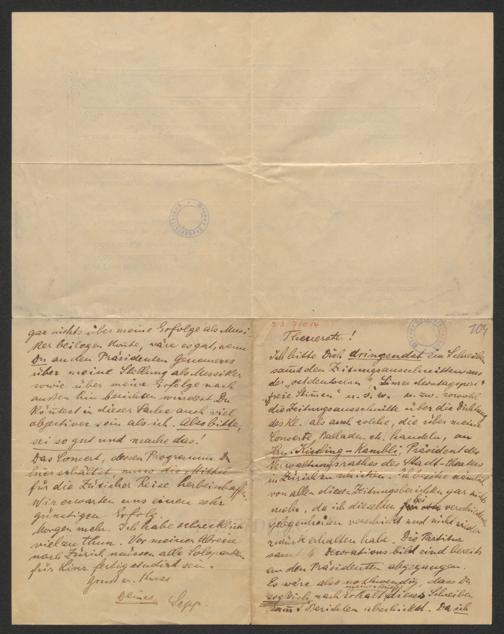 104
Theuerste!
Ich bitte Dich dringendst ein Schreiben
samt den Zeitungsausschnitten aus
der "ostdeutschen", "Linzer Montagspost"
freie Stimmen u. s. w. u. zw. sowohl
die Zeitungsausschnitte über die Dichtung
des Kl. als auch solche, die über meine
Concerte, Balladen etc. handeln, an
Präsident des
Verwaltungsrathes des Stadt-Theaters
in Zürich zu richten. Ich besitze nämlich
von allen diesen Zeitungsberichten gar nichts
mehr, da ich dieselben bei verschiedenen
Gelegenheiten verschickt und nicht wieder
zurück erhalten habe. Die Partitur
samt 4 Decorationsbild sind bereits
an den Präsidenten abgegangen.
Es wäre also nothwendig, dass Du
sogleich nach Erhalt dieses Schreibens
Berichten überschickst. Da ich
gar nichts über meine Erfolge als Musi-
ker beilegen konnte, wäre es gut, wenn
Du an den Präsidenten Genaueres
über meine Stellung als Musiker
sowie über meine Erfolge nach
aussen hin berichten würdest. Du
könntest in dieser Sache auch viel
objectiver sein als ich. Also bitte,
sei so gut und mache das!
Das Concert, dessen Programm Du
hier erhältst muss die Mittel
für die Züricher Reise herbeischaffen.
Wir erwarten uns einen sehr
günstigen Erfolg.
Morgen mehr. Ich habe schrecklich
viel zu thun. Vor meiner Abreise
nach Zürich müssen alle Solopartien
für fertig studirt sein.
Gruss u. Kuss
Deines Sepp.